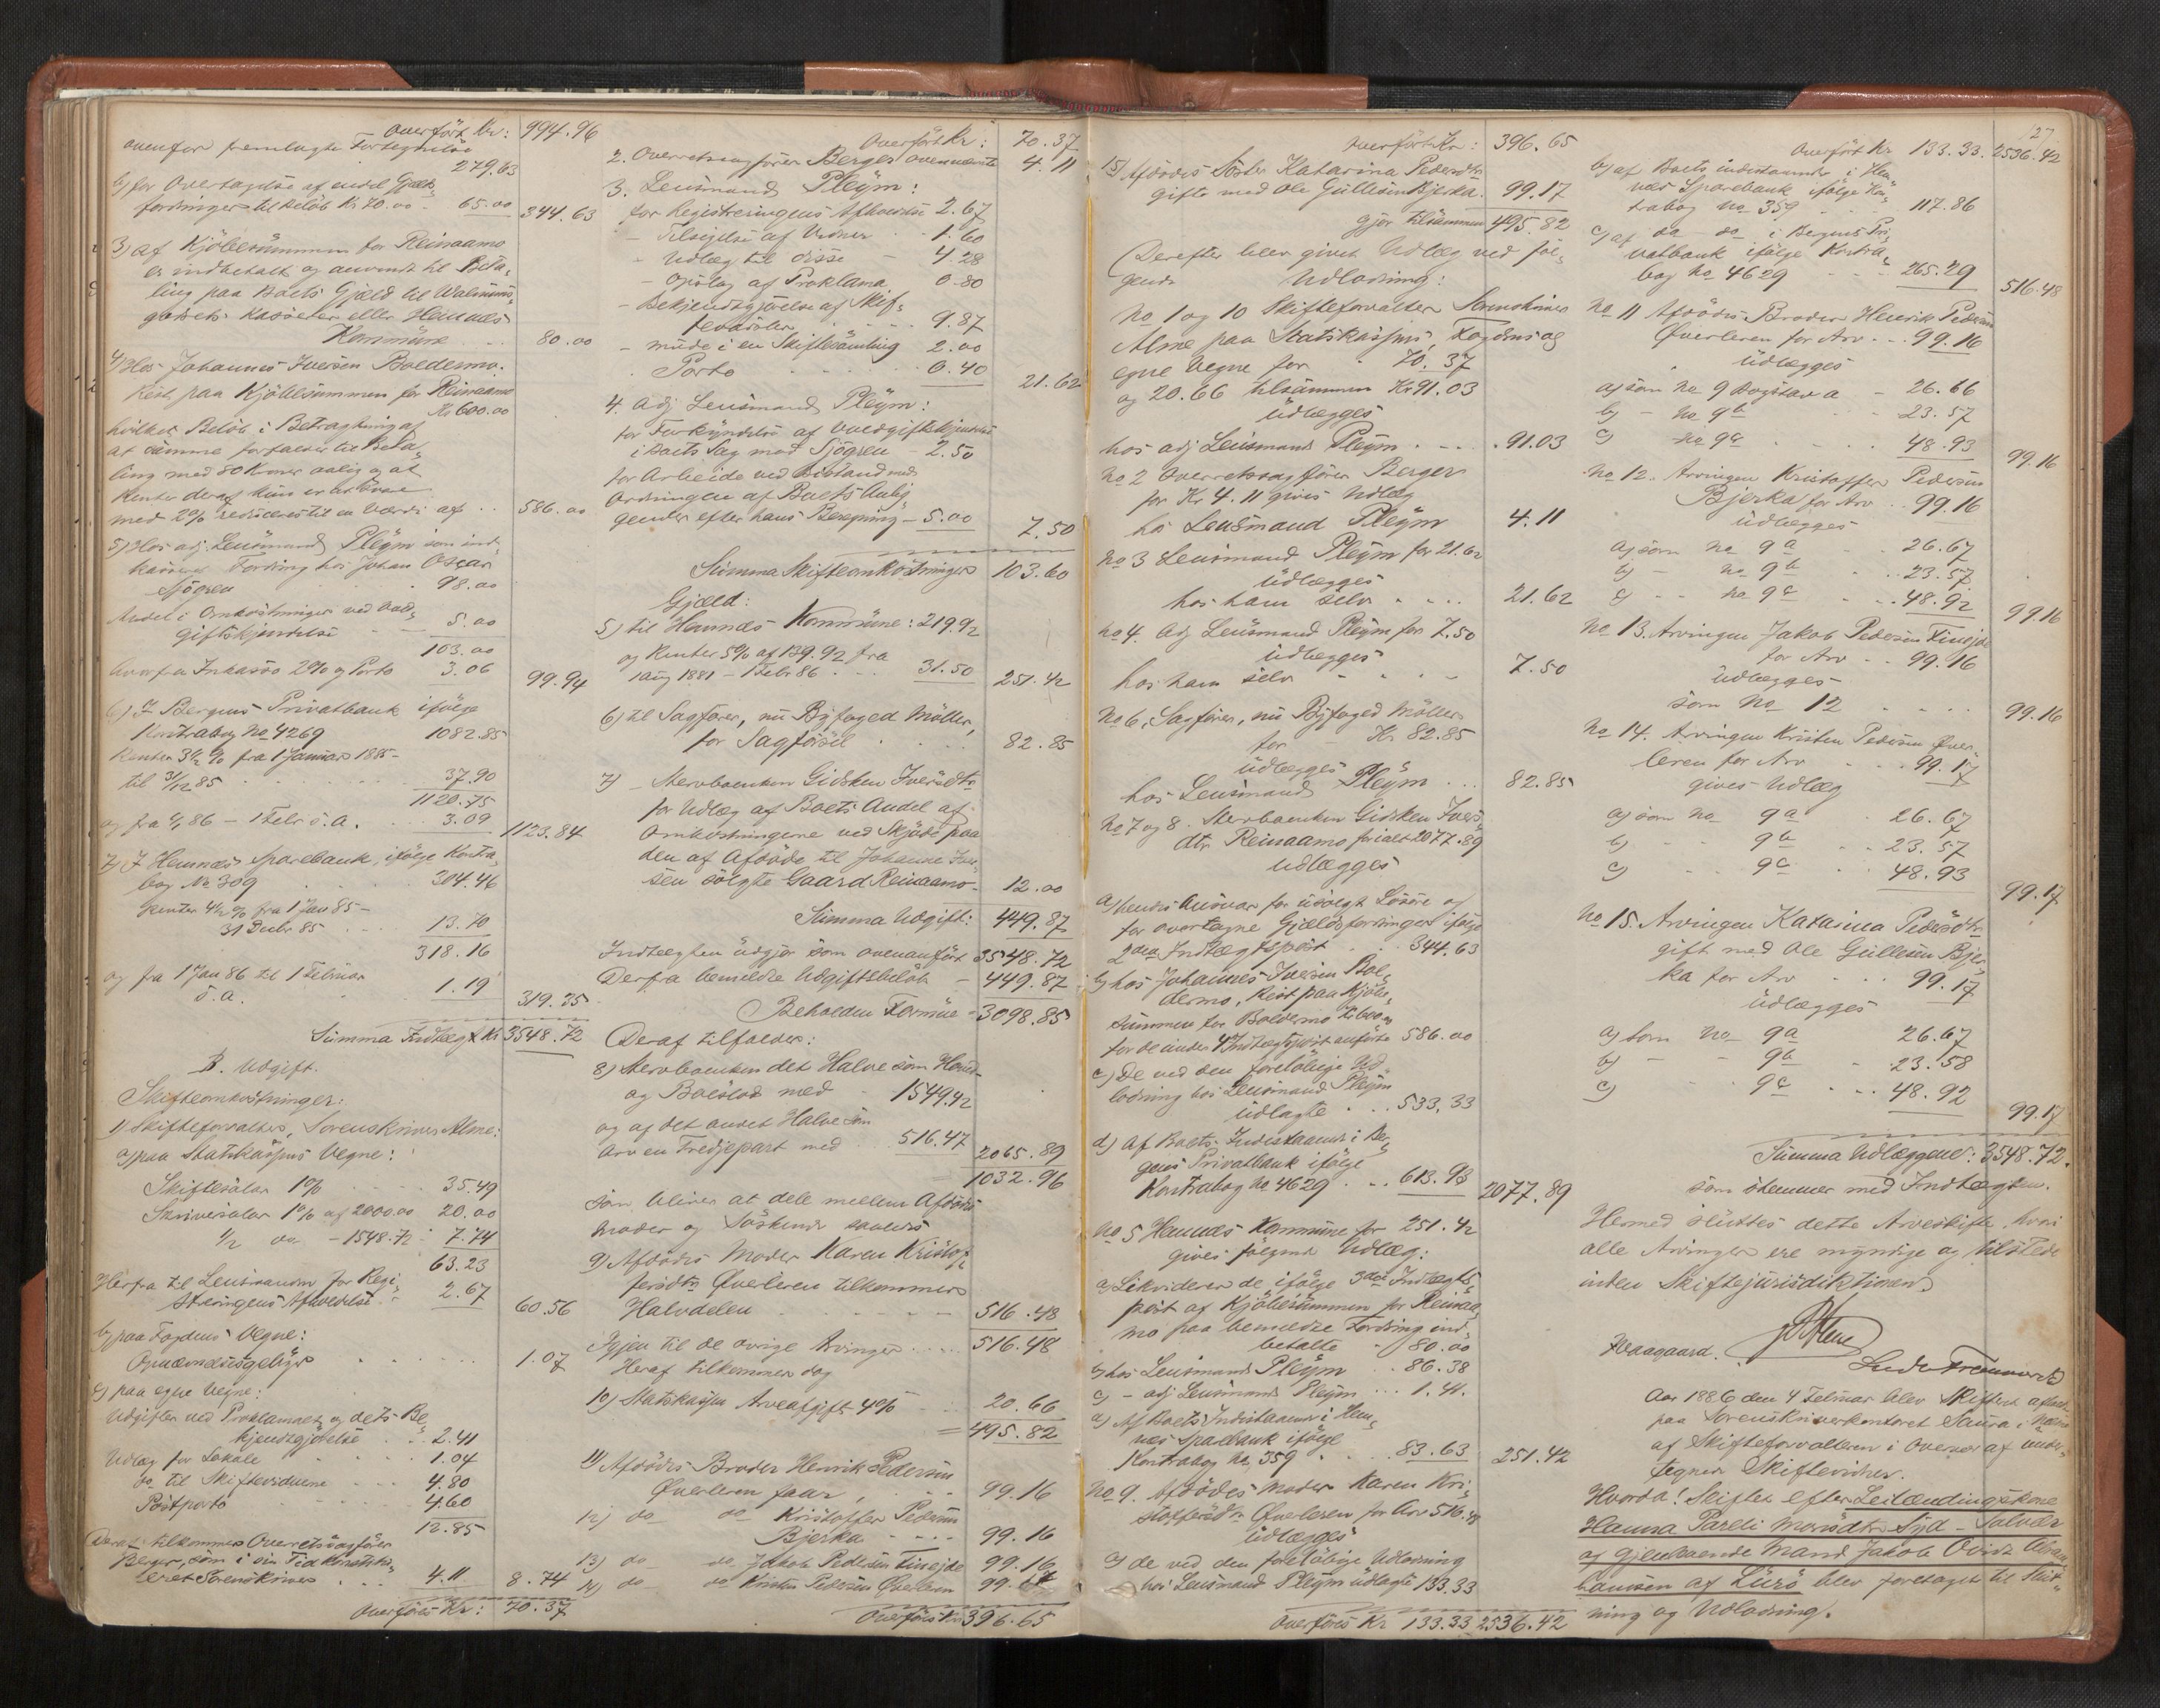 Overført Kr: 994.96
ovenfor fremlagte Fortegnelse
279.63
b) for Overtagelse af endel Gjælds
fordringer til Beløb Kr 70.00 - 65.00 344.63
3) af Kjøbesummen for Reinaamo
er indbetalt og anvendt til Beta„
ling paa Boets Gjæld til
Kasserer eller Hemnæs
Kommune 80.00
4) Hos Johannes Iversen Boldermo
Rest paa Kjøbesummen for Reinaamo
Kr 600.00
hvilket Beløb i Betragtning af
at samme forfalder til Beta„
ling med 80 Kroner aarlig og at
Renter deraf kun er
med 2% reduceres til en Værdi af 586.00
5) Hos adj. Lensmand Pleym som ind„
kasseret Fordring hos Johan Oscar
Sjögren 98.00
Andel i Omkostninger ved Vold„
giftskjendelse 5.00
103.00
hvorfra Inkasso 2% og Porto 3.06 99.94
6) I Bergens Privatbank ifølge
Kontrabog No 4269 1082.85
Renter 3½ % fra 1 Januar 1885 -
til 31/12 85 37.90
1120.75
og fra 1/1 86 - 1 Febr d.A. 3.09 1123.84
7) I Hemnæs Sparebank, ifølge Kontra„
bog No 309 304.46
Renter 4½ % fra 1 Jan 85 -
31 Decbr 85 13.70
318.16
og fra 1 Jan 86 til 1 Februar
d.A. 1.19 319.35
Summa Indtægt Kr 3548.72
B. Udgift.
Skifteomkostninger:
1) Skifteforvalter, Sorenskriver Alme:
a) paa Statskassens Vegne:
Skiftesalar 1% 35.49
Skriversalar 1% af 2000.00 20.00
½ do - 1548.72 7.74
63.23
Herfra til Lensmanden for Regi„
streringens Afhoedelse 2.67 60.56
b) paa Fogdens Vegne:
Opnævnelsesgebyr 1.07
c) paa egne Vegne:
Udgifter ved Proklamaet og dets Be„
kjendtgjørelse 2.41
Udlæg for Lokale 1.04
do til Skiftevidnerne 4.80
Postporto 4.60
12.85
Deraf tilkommer Overretssagfører
Berger, som i sin Tid konstitu„
eret Sorenskriver 4.11 8.74
Overføres Kr: 70.37
Overført Kr: 70.37
2. Overretssagfører Berger ovennævnte 4.11
3. Lensmand Pleym:
for Registreringens Afholdelse 2.67
- Tilsigelse af Vidner 1.60
- Udlæg til disse - 4.28
- Opslag af Proklama 0.80
- Bekjendtgjørelse af Skif„
tesamler 9.87
- møde i en Skiftesamling 2.00
- Porto 0.40 21.62
4. adj Lensmand Pleym:
for Forkyndelse af Voldgiftskjendelse
i Boets Sag mod Sjögren - 2.50
for Arbeide ved Bistand med
Ordningen af Boets Anlig„
gender efter hans Beregning - 5.00 7.50
Summa Skifteomkostninger 103.60
Gjæld:
5) til Hemnæs Kommune: 219.92
og Renter 5% af 139.92 fra
1 Aug 1881 - 1 Febr 86 31.50 251.42
6) til Sagfører, nu Byfoged Møller,
for Sagførsel 82.85
7) Stervboenken Gidsken Iversdtr
for Udlæg af Boets Andel af
Omkostningerne ved Skjøde paa
den af Afdøde til Johannes Iver„
sen solgte Gaard Reinaamo - 12.00
Summa Udgift: 449.87
Indtægten udgjør som ovenanført 3548.72
Derfra bemeldte Udgiftsbeløb - 449.87
Beholden Formue - 3098.85
Deraf tilfalder:
8) Stervboenken det Halve som Hoved-
og Boeslod med 1549.42
og af det andet Halve som
Arv en Tredjepart med 516.47 2065.89
1032.96
som bliver at dele mellem Afdødes
Moder og Søskende saaledes
9) Afdødes Moder Karen Kristof„
fersdtr Øverleren tilkommer
Halvdelen 516.48
Igjen til de øvrige Arvinger 516.48
Heraf tilkommer dog
10) Statskassen Arveafgift 4% 20.66
= 495.82
11) Afdødes Broder Henrik Pedersen
Øverleren faar, 99.16
12) do do Kristoffer Pedersen
Bjerka 99.16
13) do do Jakob Pedersen Finejde 99.16
14) do do Kristen Pedersen Øverleren 99.17
Overføres Kr 396.65
Overført Kr: 396.65
15) Afdødes Søster Katarina Pedersdtr
gift med Ole Gullesen Bjerka 99.17
gjør tilsammen 495.82
Derefter blev givet Udlæg ved føl„
gende Udlodning:
No 1 og 10 Skifteforvalter Sorenskriver
Alme paa Statskassens, Fogdens og
egne Vegne for 70.37
og 20.66 tilsammen Kr 91.03
udlægges
hos adj Lensmand Pleym 91.03
No 2 Overretssagfører Berger
for Kr 4.11 gives Udlæg
hos Lensmand Pleym 4.11
No 3 Lensmand Pleym for 21.62
udlægges
hos ham selv 21.62
No 4. Adj Lensmand Pleym for 7.50
udlægges
hos ham selv 7.50
No 6. Sagfører, nu Byfoged Møller
for - Kr 82.85
udlægges
hos Lensmand Pleym 82.85
No 7 og 8. Stervboenken Gidsken Ivers„
dtr Reinaamo for ialt 2077.89
udlægges
a) hendes Ansvar for udsolgt Løsøre og
for overtagne Gjældsfordringer ifølge
2den Indtægtspost 344.63
b) hos Johannes Iversen Bol„
dermo, Rest paa Kjøbe„
summen for Boldermo Kr 600.00
for de under 4de Indtægtspost anførte 586.00
c) De ved den foreløbige Ud„
lodning hos Lensmand Pleym
udlagte 533.33
d) Af Boets Indestaaende i Ber„
gens Privatbank ifølge
Kontrabog No 4629 613.93 2077.89
No 5 Hemnæs Kommune for 251.42
gives følgende Udlæg:
a) Likviderer de ifølge 3die Indtægts„
post af Kjøbesummen for Reinaa„
mo paa bemeldte Fordring ind„
betalte 80.00
b) hos Lensmand Pleym 86.38
c) - adj Lensmand Pleym 1.41.
d) Af Boets Indestaaende i Hem„
næs Sparebank ifølge
Kontrabog No 359 83.63 251.42
No 9. Afdødes Moder Karen Kri„
stoffersdtr Øverleren for Arv 516.48
udlægges
a) de ved den foreløbige Udlodning
hos Lensmand Pleym udlagte 133.33
Overføres Kr 133.33 2536.42
127
Overført Kr 133.33. 2536.42
b) af Boets indestaaende i Hem„
næs Sparebank ifølge Kon„
trabog No 359 117.86
c) af do do i Bergens Pri„
vatbank ifølge Kontra„
bog No 4629 265.29 516.48
No 11 Afdødes Broder Henrik Pedersen
Øverleren for Arv 99.16
udlægges
a) som No 9 Bogstav a - 26.66
b) - No 9b 23.57
c) No 9c 48.93 99.16
No 12. Arvingen Kristoffer Pedersen
Bjerka for Arv 99.16
udlægges
a) som No 9a 26.67
b) - No 9b 23.57
c) - No 9c 48.92 99.16
No 13. Arvingen Jakob Pedersen Finejde
for Arv 99.16
udlægges
som No 12 99.16
No 14. Arvingen Kristen Pedersen Øver„
leren for Arv 99.17
gives Udlæg
a) som No 9a 26.67
b) 9b 23.57
c) 9c 48.93 99.17
No 15. Arvingen Katarina Pedersdtr
gift med Ole Gullesen Bjer„
ka for Arv 99.17
udlægges
a) som No 9a 26.67
b) - 9b 23.58
c) 9c 48.92 99.17
Summa Udlæggene: 3548.72.
som stemmer med Indtægten.
Hermed sluttes dette Arveskifte, hvori
alle Arvinger ere myndige og tilstede
inden Skiftejurisdiktionen
Alme
Haagaard.
Aar 1886 den 4 Februar blev Skifteret afholdt
paa Sorenskriverkontoret Saura i Næsne
af Skifteforvalteren i Overvær af under„
tegnede Skiftevidner.
Hvorda! Skiftet efter Leilændingskone
Hanna Pareli Monsdtr Syd - Solvær
og gjenlevende Mand Jakob Ovidt Abra„
hamsen af Lurø blev foretaget til Slut„
ning og Udlodning.